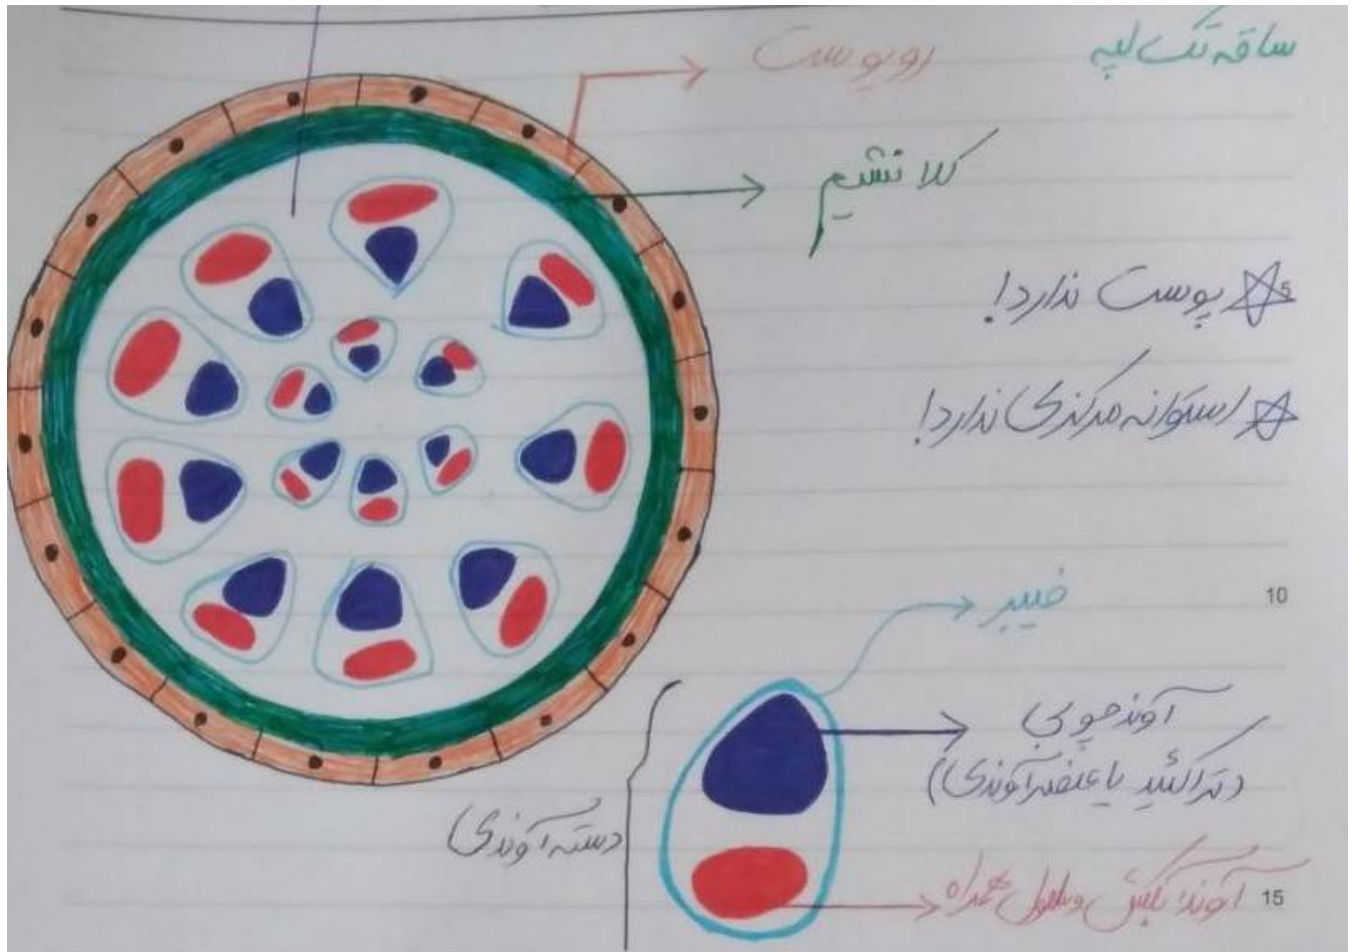 ساقه تک لپه
روپوست
کلانشیم
پوست ندارد!
استوانه مرکزی ندارد!
فیبر
آوند چوبی
(تراکئید یا عنصر آوندی)
دسته آوندی
آوند آبکش و سلول همراه
5
10
15